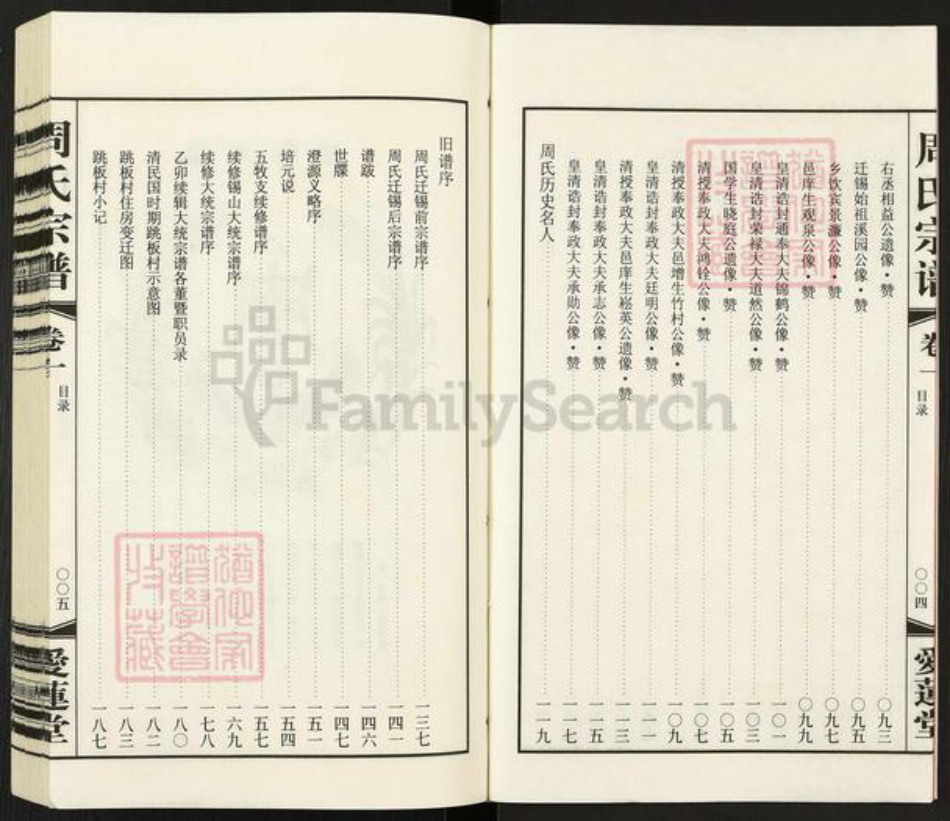 周氏宗谱
卷一
目录
〇〇四
愛蓮堂
右丞相益公遗像·赞 〇九三
迁锡始祖溪园公像·赞 〇九五
乡饮宾景濂公像·赞 〇九七
邑庠生观泉公像·赞 〇九九
皇清诰封通奉大夫锦鹤公像·赞 一〇一
皇清诰封荣禄大夫道然公像·赞 一〇三
国学生晓庭公遗像·赞 一〇五
清授奉政大夫鸿铨公像·赞 一〇七
清授奉政大夫邑增生竹村公像·赞 一〇九
皇清诰封奉政大夫廷明公像·赞 一一一
清授奉政大夫邑庠生崧英公遗像·赞 一一三
皇清诰封奉政大夫承志公像·赞 一一五
皇清诰封奉政大夫承勋公像·赞 一一七
周氏历史名人 一一九
旧谱序
周氏迁锡前宗谱序 一三七
周氏迁锡后宗谱序 一四一
谱跋 一四六
世牒 一四七
澄源义略序 一五一
培元说 一五四
五牧支续修谱序 一五七
续修锡山大统宗谱序 一六九
续修大统宗谱序 一七八
乙卯续辑大统宗谱各董暨职员录 一八〇
清民国时期跳板村示意图 一八二
跳板村住房变迁图 一八三
跳板村小记 一八七
周氏宗谱
卷一
目录
〇〇五
愛蓮堂
FamilySearch
譜學會